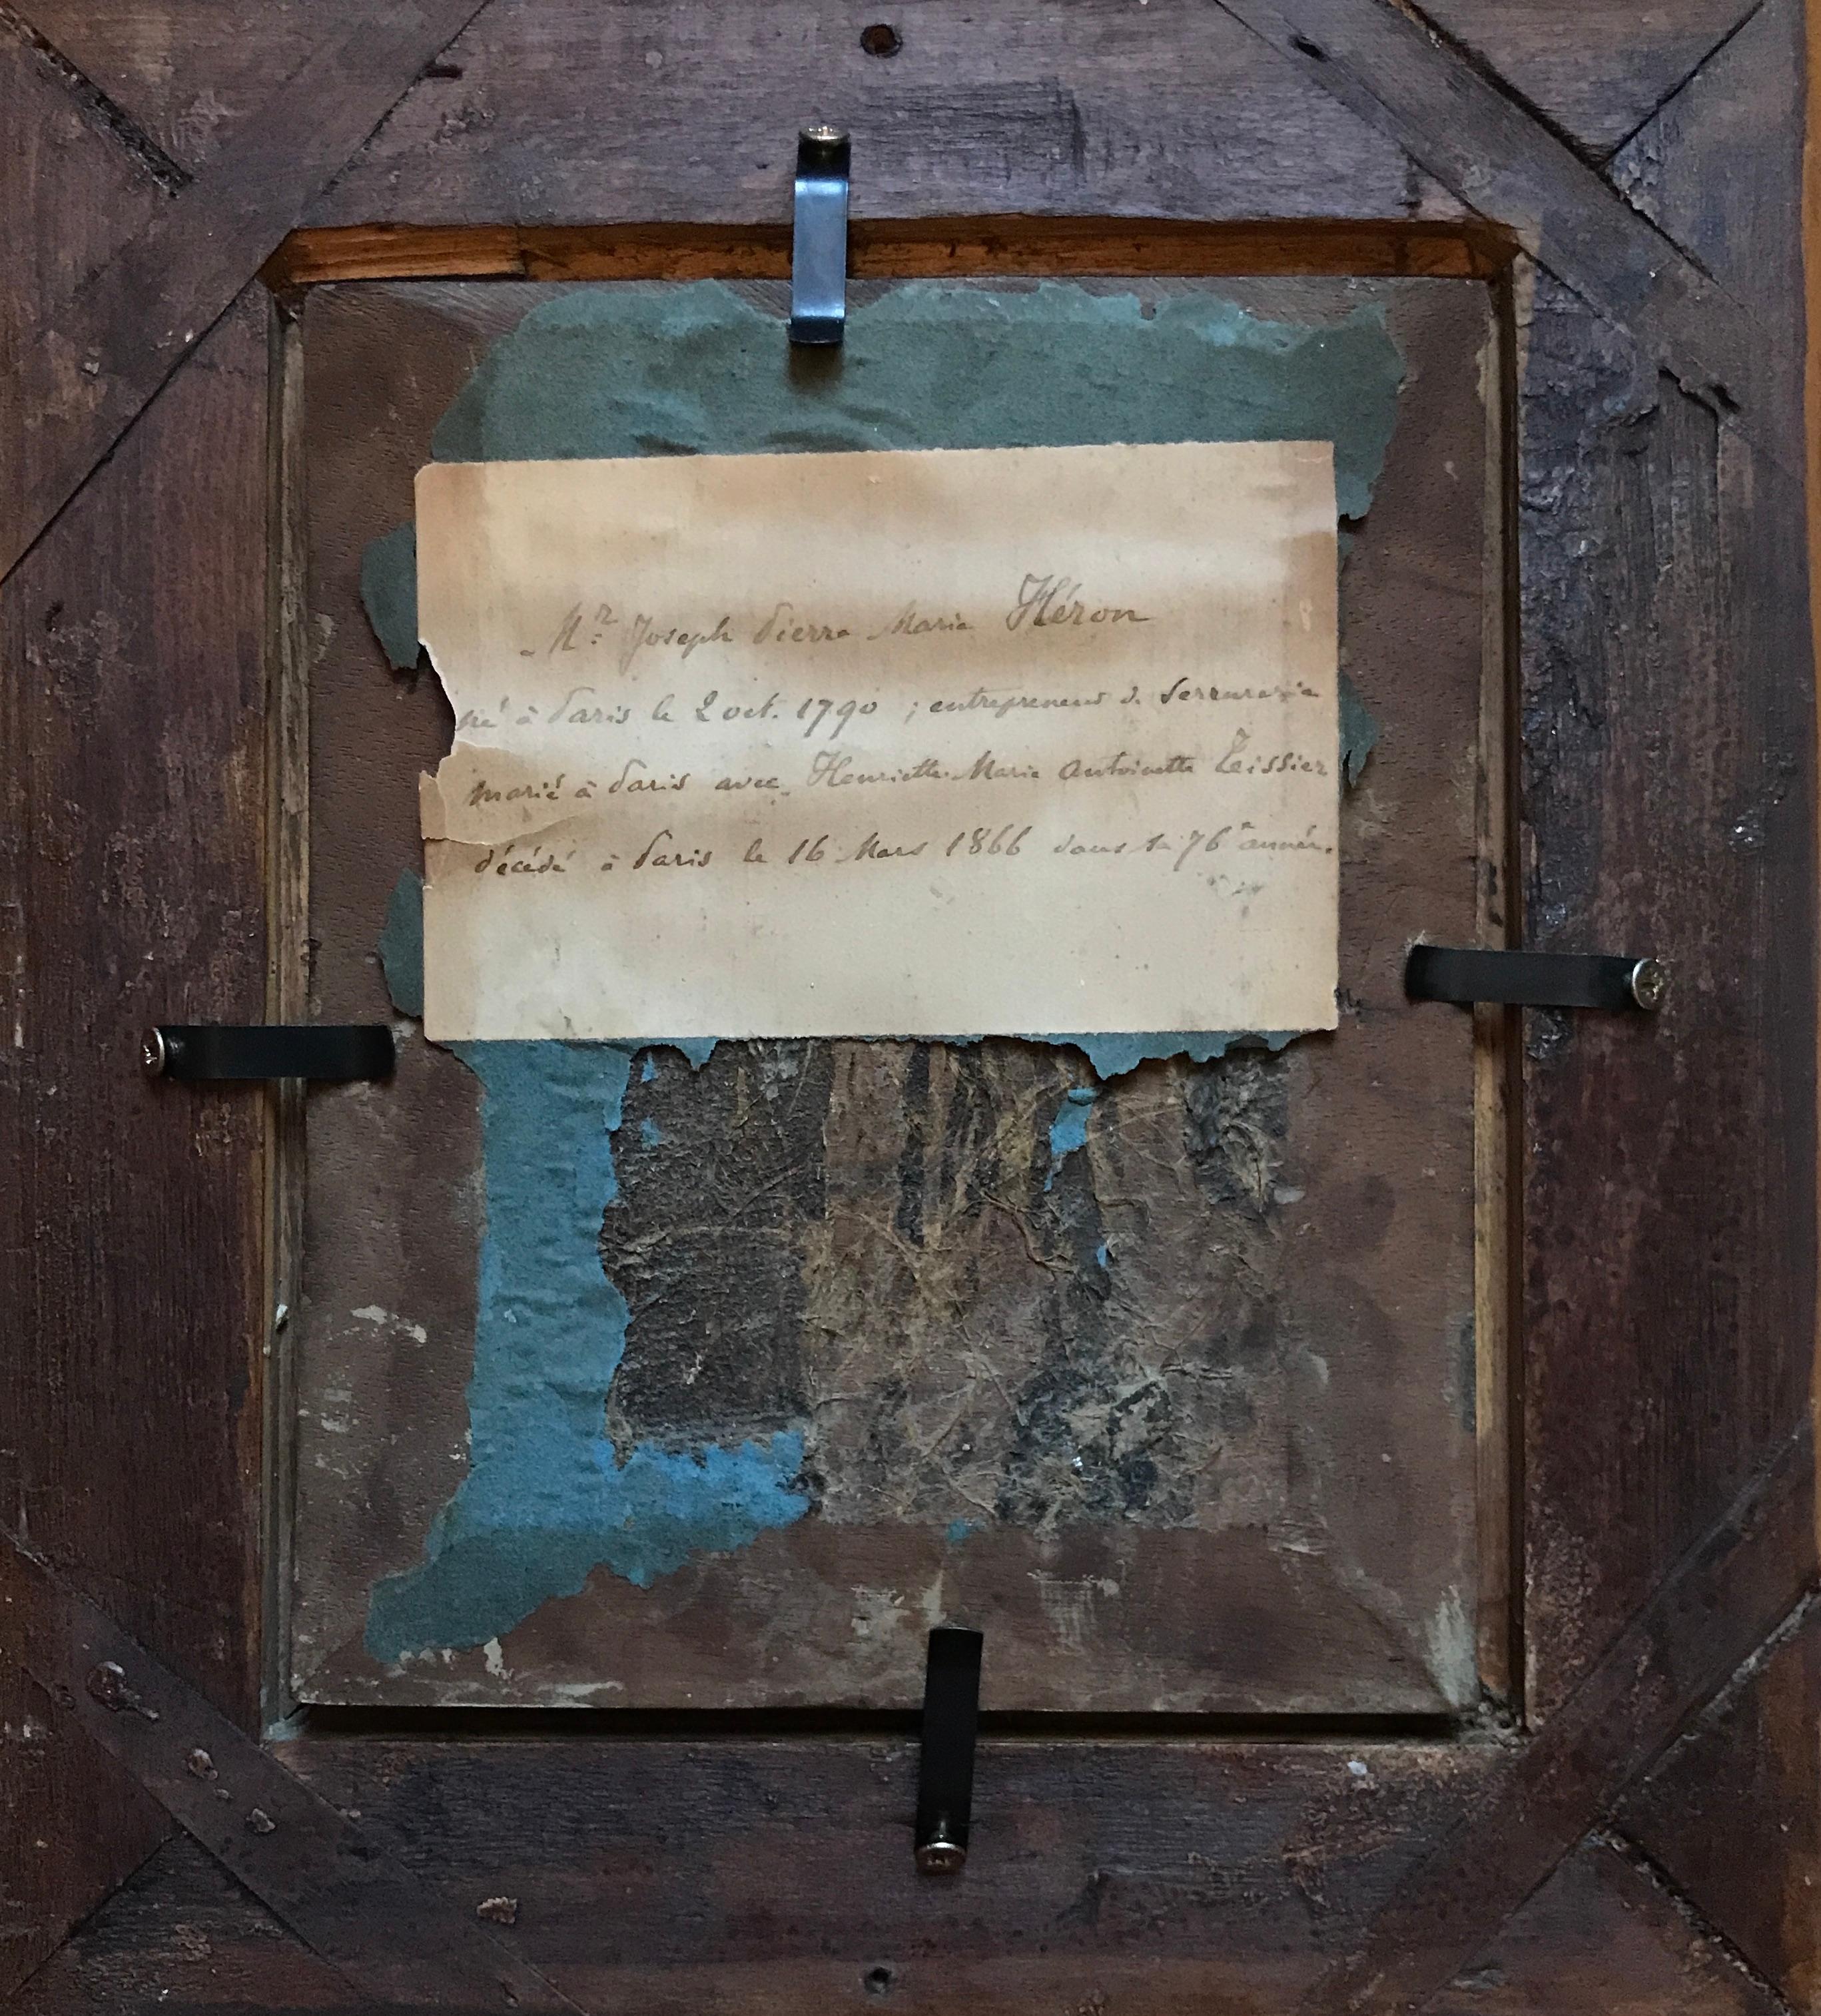 Mr Joseph Pierre Marie Héron
né à Paris le 2 oct. 1790 ; entrepreneur de Serrurerie
marié à Paris avec Henriette Marie Antoinette Teissier
décédé à Paris le 16 Mars 1866 dans sa 76e année.